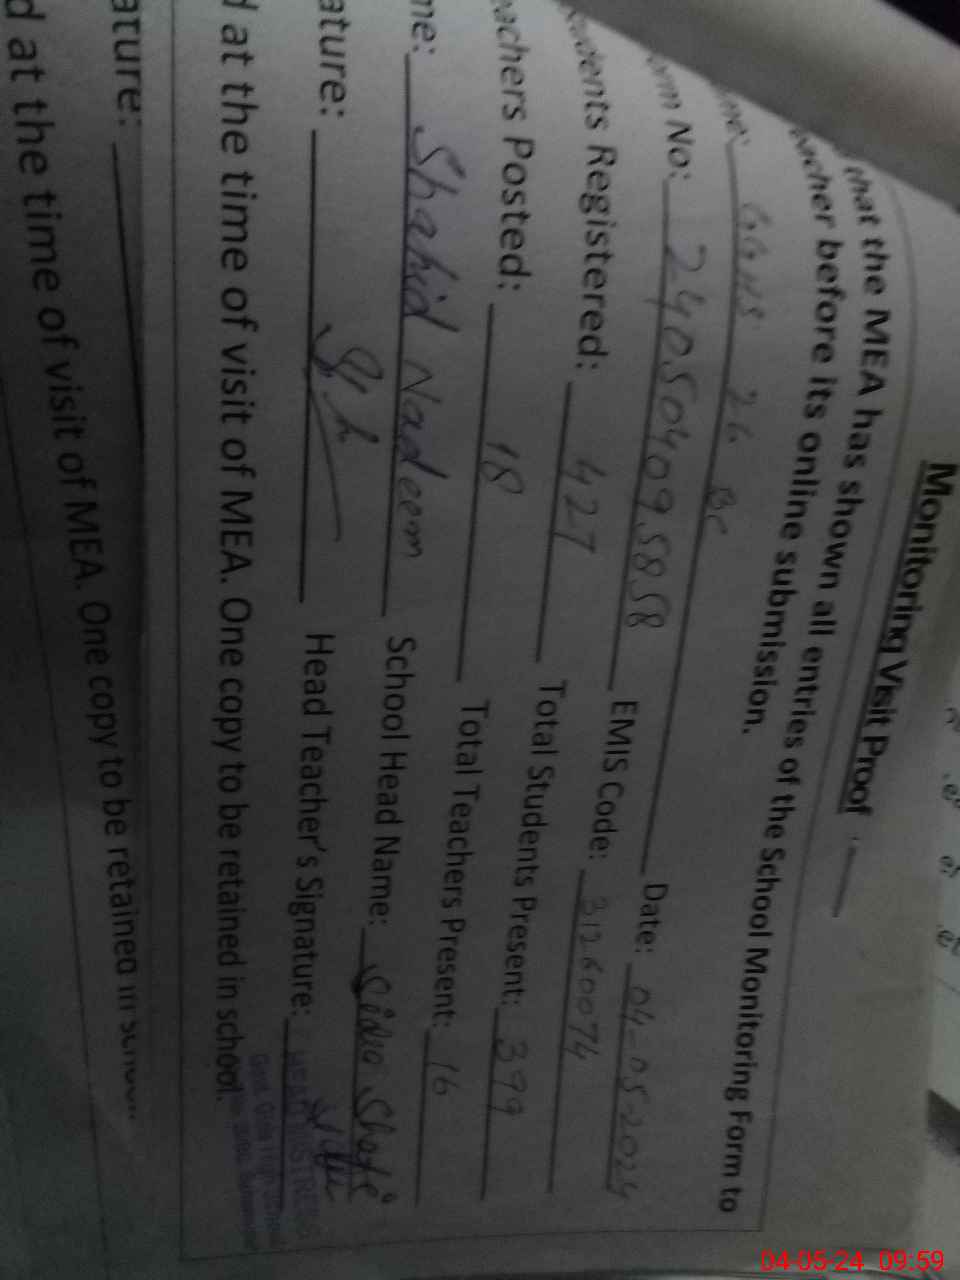 Monitoring Visit Proof
that the MEA has shown all entries of the School Monitoring Form to
eacher before its online submission.
me: GGHS 26 BC Date: 04-05-2024
orm No: 240504095858 EMIS Code: 31260074
udents Registered: 427 Total Students Present: 399
eachers Posted: 18 Total Teachers Present: 16
me: Shahid Nadeem School Head Name:
ature: Head Teacher's Signature:
HEAD MISTRESS
d at the time of visit of MEA. One copy to be retained in school.
ature:
d at the time of visit of MEA. One copy to be retained in school.
04-05-24 09:59